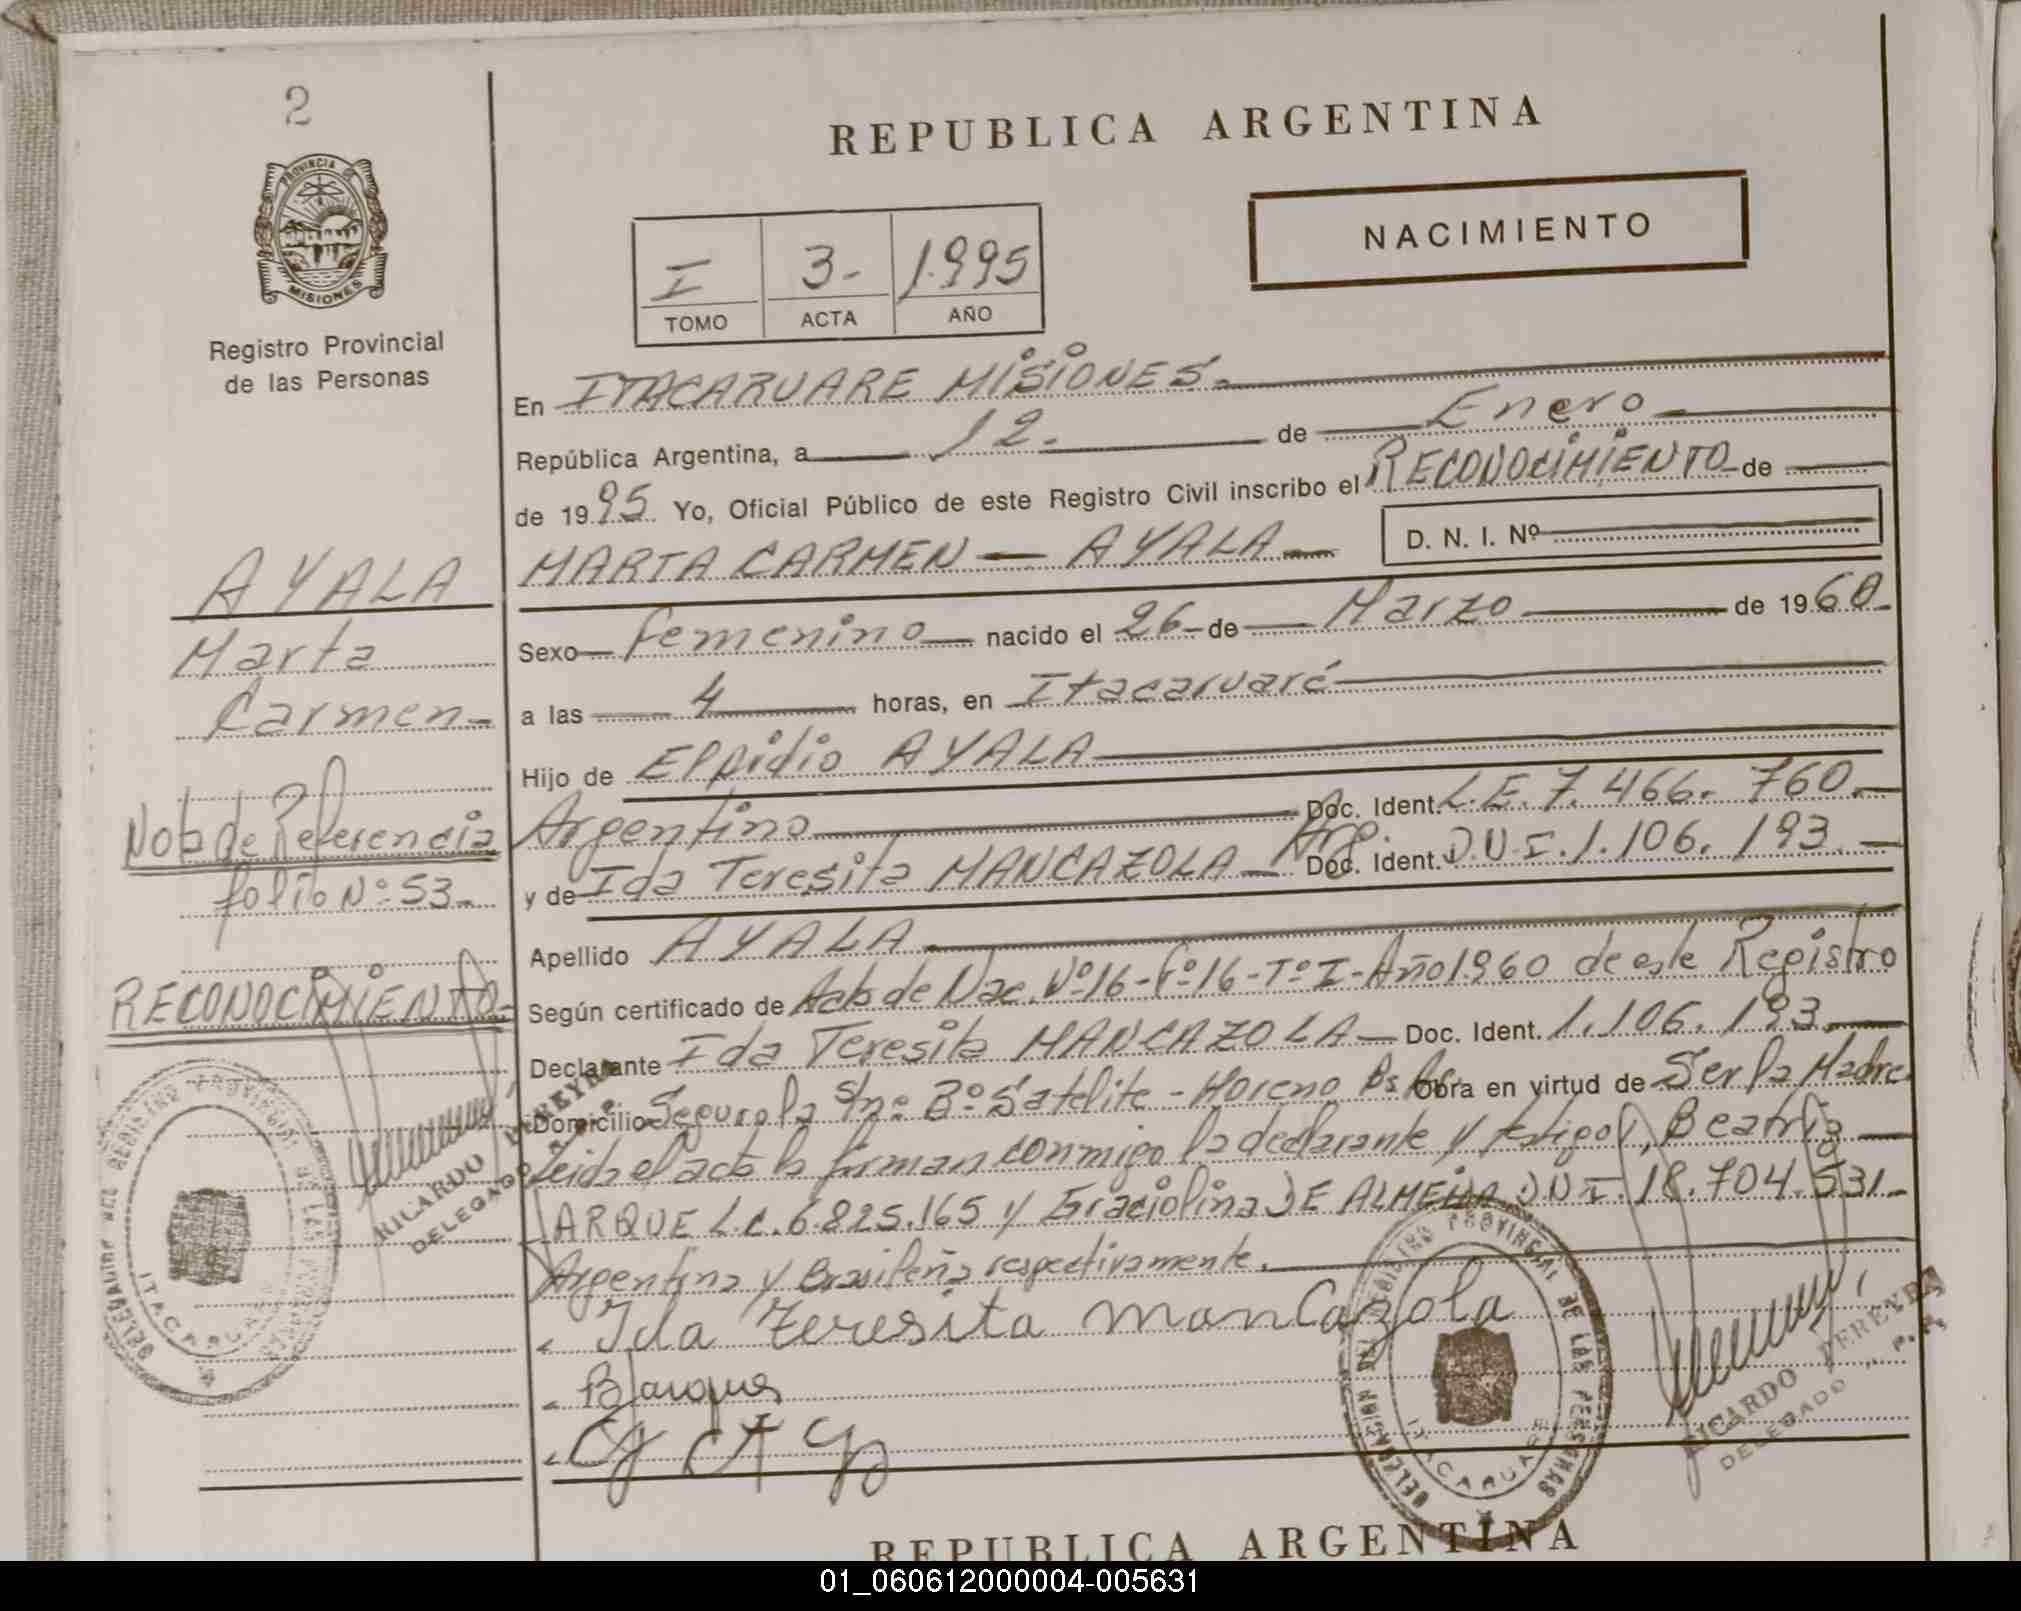 2
PROVINCIA DE
MISIONES
Registro Provincial
de las Personas
REPUBLICA ARGENTINA
NACIMIENTO
I 3- 1.995
TOMO ACTA AÑO
En ITACARUARE MISIONES.
República Argentina, a 12. de Enero
de 1995. Yo, Oficial Público de este Registro Civil inscribo el RECONOCIMIENTO de
MARTA CARMEN AYALA
D. N. I. Nº
Sexo femenino nacido el 26 de Marzo de 1960.
a las 4 horas, en Itacaruaré
Hijo de Elpidio AYALA
Argentino Doc. Ident. L.E. 7.466.760.
y de Ida Teresita MANCAZOLA Arg. Doc. Ident. D.N.I. 1.106.193.
Apellido AYALA
Según certificado de Acta de Nac. Nº16-Fº16-Tº I-Año 1960 de este Registro
Declarante Ida Teresita MANCAZOLA Doc. Ident. 1.106.193.
Domicilio Segurola S/nº Bº Satelite - Moreno Bs As. Obra en virtud de Ser la Madre.
Leida el acta la firman conmigo la declarante y testigos, Beatriz
ARQUE L.C. 6.825.165 y Graciolina DE ALMEIDA D.N.I. 18.704.531-
Argentina y Brasileña respectivamente.
Ida Teresita Mancazola
BArque
AYALA
Marta
Carmen
Nota de Referencia
folio Nº 53.
RECONOCIMIENTO
DELEGACION DEL REGISTRO PROVINCIAL DE LAS PERSONAS
ITACARUARE
RICARDO PEREYRA
DELEGADO
DELEGACION DEL REGISTRO PROVINCIAL DE LAS PERSONAS
ITACARUARE
RICARDO PEREYRA
DELEGADO
REPUBLICA ARGENTINA
01_060612000004-005631